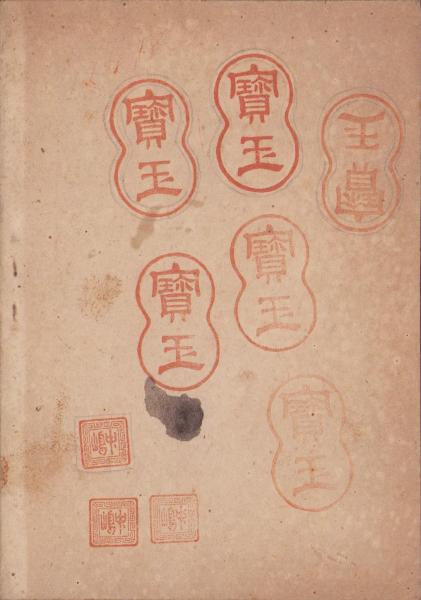 寶玉
寶玉
寶玉
寶玉
寶玉
寶玉
中嶋
中嶋
中嶋